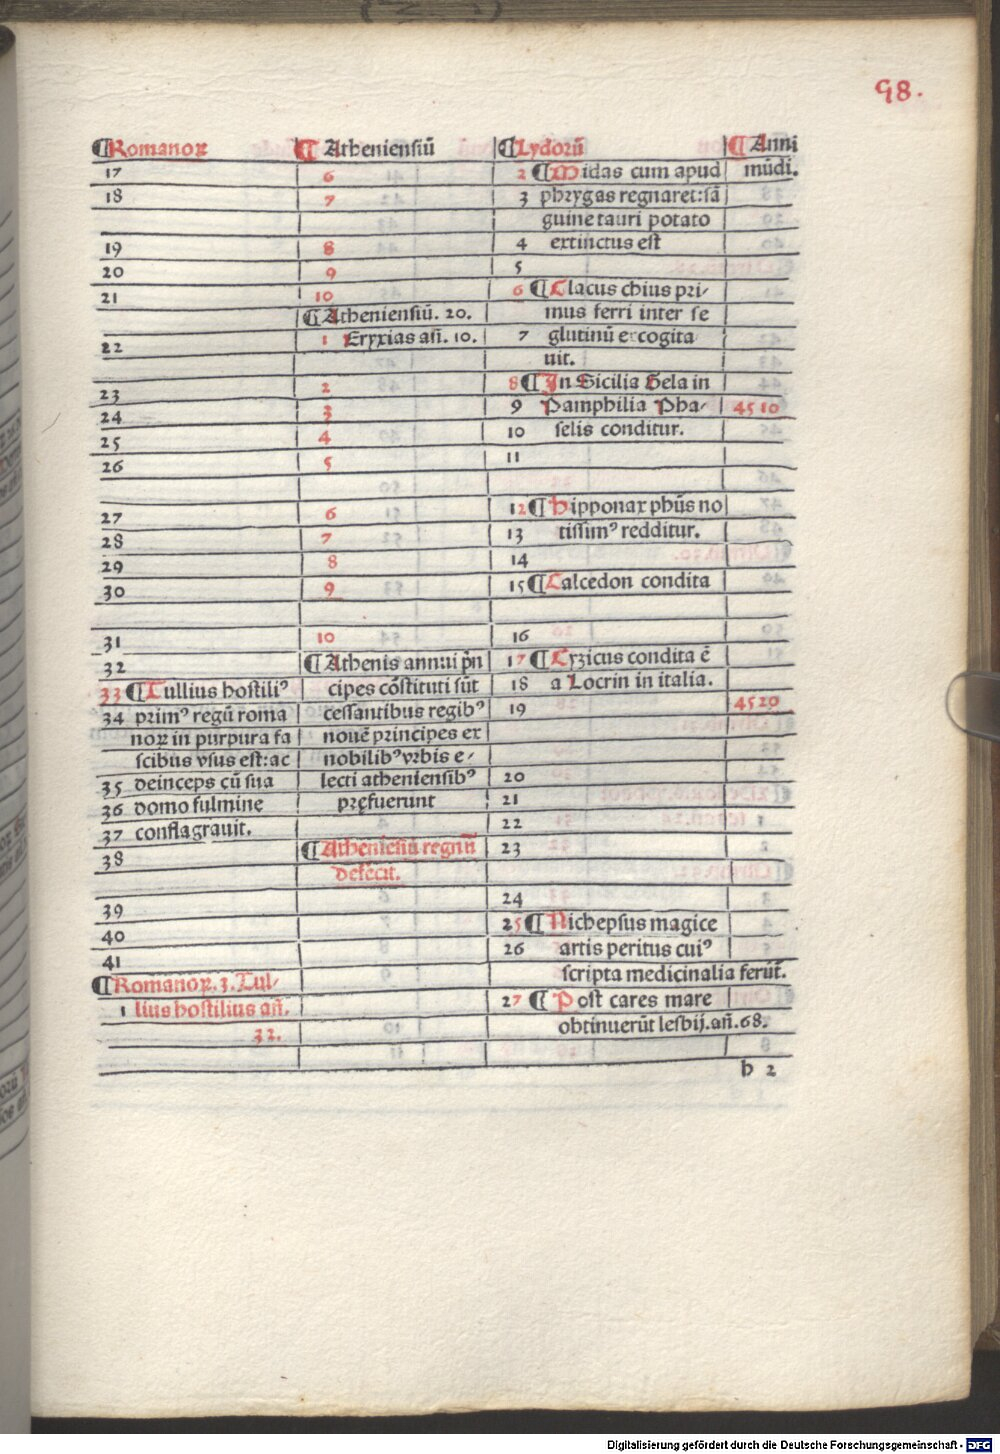 98.
¶Romanoꝝ ¶ Atheniensiū ¶Lydorū ¶ Anni
17 6 2 ¶Midas cum apud mūdi.
18 7 3 phrygas regnaret:sā
guine tauri potato
19 8 4 extinctus est
20 9 5
21 10 6 ¶Glacus chius pri-
¶Atheniensiū. 20. mus ferri inter se
22 1 Eryxias añ. 10. 7 glutinū excogita
uit.
23 2 8 ¶In Sicilia Gela in
24 3 9 Pamphilia Pha- 4510
25 4 10 selis conditur.
26 5 11
27 6 12 ¶Hipponax phūs no
28 7 13 tissimꝰ redditur.
29 8 14
30 9 15 ¶Calcedon condita
31 10 16
32 ¶Athenis annui p̄n 17 ¶Cyzicus condita ē
33 ¶Tullius hostiliꝰ cipes cōstituti sūt 18 a Locrin in italia.
34 primꝰ regū roma cessantibus regibꝰ 19 4520
noꝝ in purpura fa nouē principes ex
scibus vsus est:ac nobilibꝰ vrbis e-
35 deinceps cū sua lecti atheniensibꝰ 20
36 domo fulmine pręfuerunt 21
37 conflagrauit. 22
38 ¶Atheniēsiū regnū 23
defecit.
39 24
40 25 ¶Nichepsus magice
41 26 artis peritus cuiꝰ
¶Romanoꝝ.3.Tul- scripta medicinalia ferūt̄.
1 lius hostilius añ. 27 ¶ Post cares mare
32. obtinuerūt lesbij.añ.68.
h 2
Digitalisierung gefördert durch die Deutsche Forschungsgemeinschaft - DFG